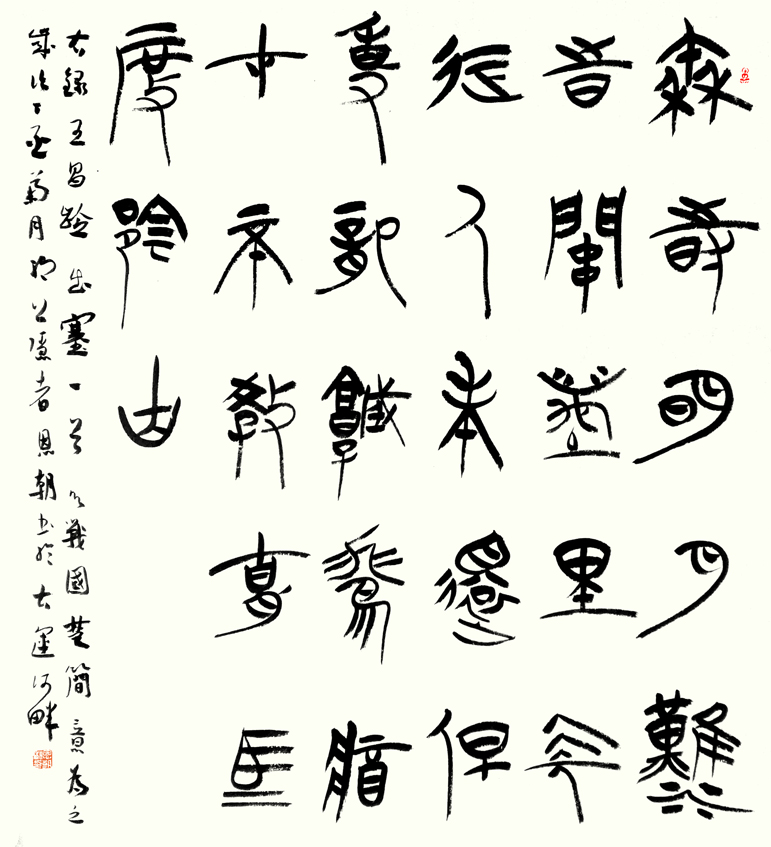 秦時明月漢
時關萬里長
征人未還但
使龍城飛將
在不教胡馬
度陰山
右錄王昌齡出塞一首以戰國楚簡意為之
歲次丁亥菊月隱者恩朝書於古運河畔